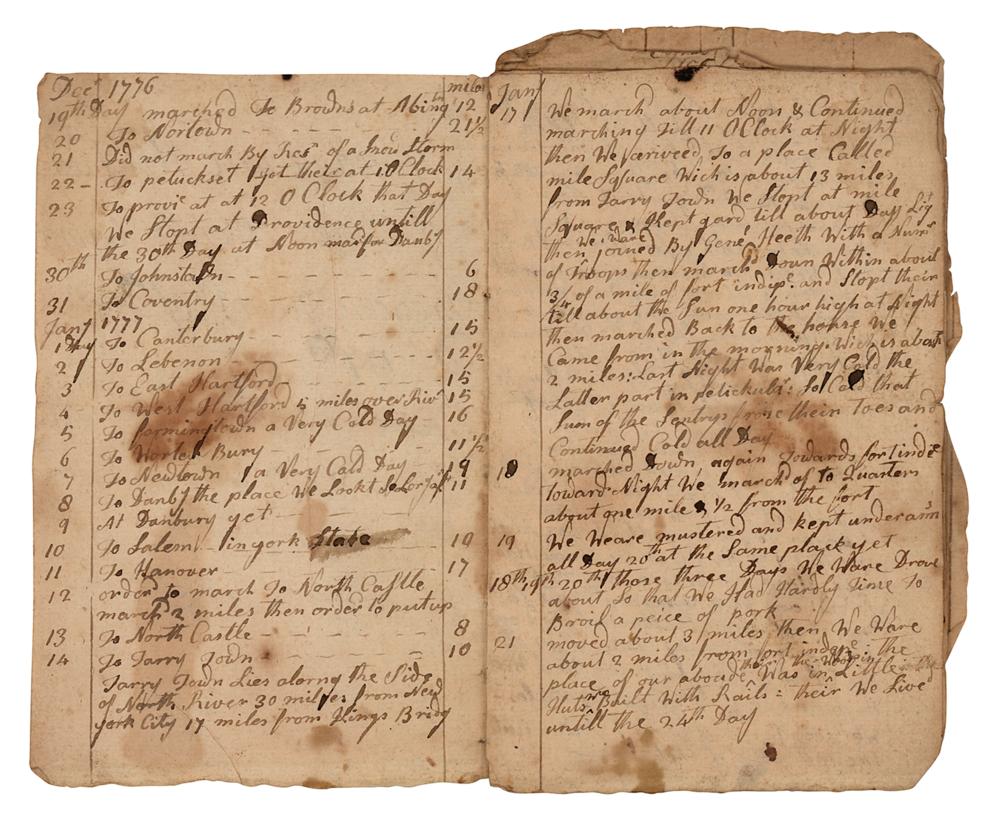 Decr 1776 miles
19th Day marched To Browns at Abingtn 12
20 To Nortown 21½
21 Did not march By Resn of a Snow Storm
22 To petuckset got their at 1 OClock 14
23 To provie at at 12 O Clock that Day
We Stopt at Providence untill
the 30th Day at Noon
30th To Johnstown 6
31 To Coventry 18
Jany 1777
1 Day To Canterbury 15
2 To Lebenon 12½
3 To East Hartford 15
4 To West Hartford 5 miles over Rivr 15
5 To farmingtown a Very Cold Day 16
6 To Worter Bury 11½
7 To Newtown a Very Cald Day 19
8 To Danby the place We Lookt 11
9 At Danbury yet
10 To Salem in york State 10
11 To Hanover 17
12 order to march To North Castle
march 2 miles then order to put up
13 To North Castle 8
14 To Tarry Town 10
Tarry Town Lies alorng the Side
of North River 30 miles from New
york City 17 miles from Kings Bridg
Jany
17 We march about Noon & Continued
marching Till 11 OClock at Night
then We arriveed To a place Called
mile Square Wich is about 13 miles
from Tarry Town We Stopt at mile
Square & Kept gard till about Day Lit
then We Ware Joined By Gene Heeth With a Numr
of Troops then marchd Down Within about
3/4 of a mile of fort indipt and Stopt their
till about the Sun one hour high at Night
then marched Back to the house We
Came from in the morning Wich is about
2 miles: Last Night Was Very Cold the
Latter part in pelickulr: So Cold that
Sum of the Sentrys froze their toes and
Continued Cold all Day
18 marched Down again Towards fort inde
toward Night We march of to Quarters
about one mile & 1/2 from the fort
19 We Weare mustered and kept under arm
all Day 20th at the Same place yet
18th 19th 20th those three Days We Ware Drove
about So that We Had Hardly Time To
Broil a peice of pork
21 moved about 3 miles then We Ware
about 2 miles from fort inde the
place of our aboude Was in Little
Huts Built With Rails: their We Lived
untill the 24th Day